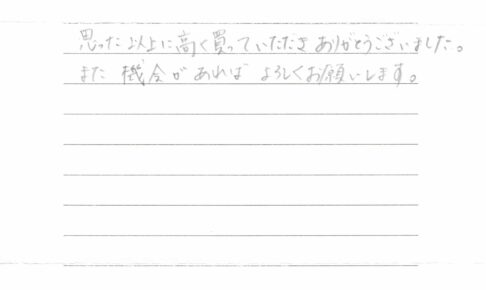 思った以上に高く買っていただきありがとうございました。
また機会があればよろしくお願いします。